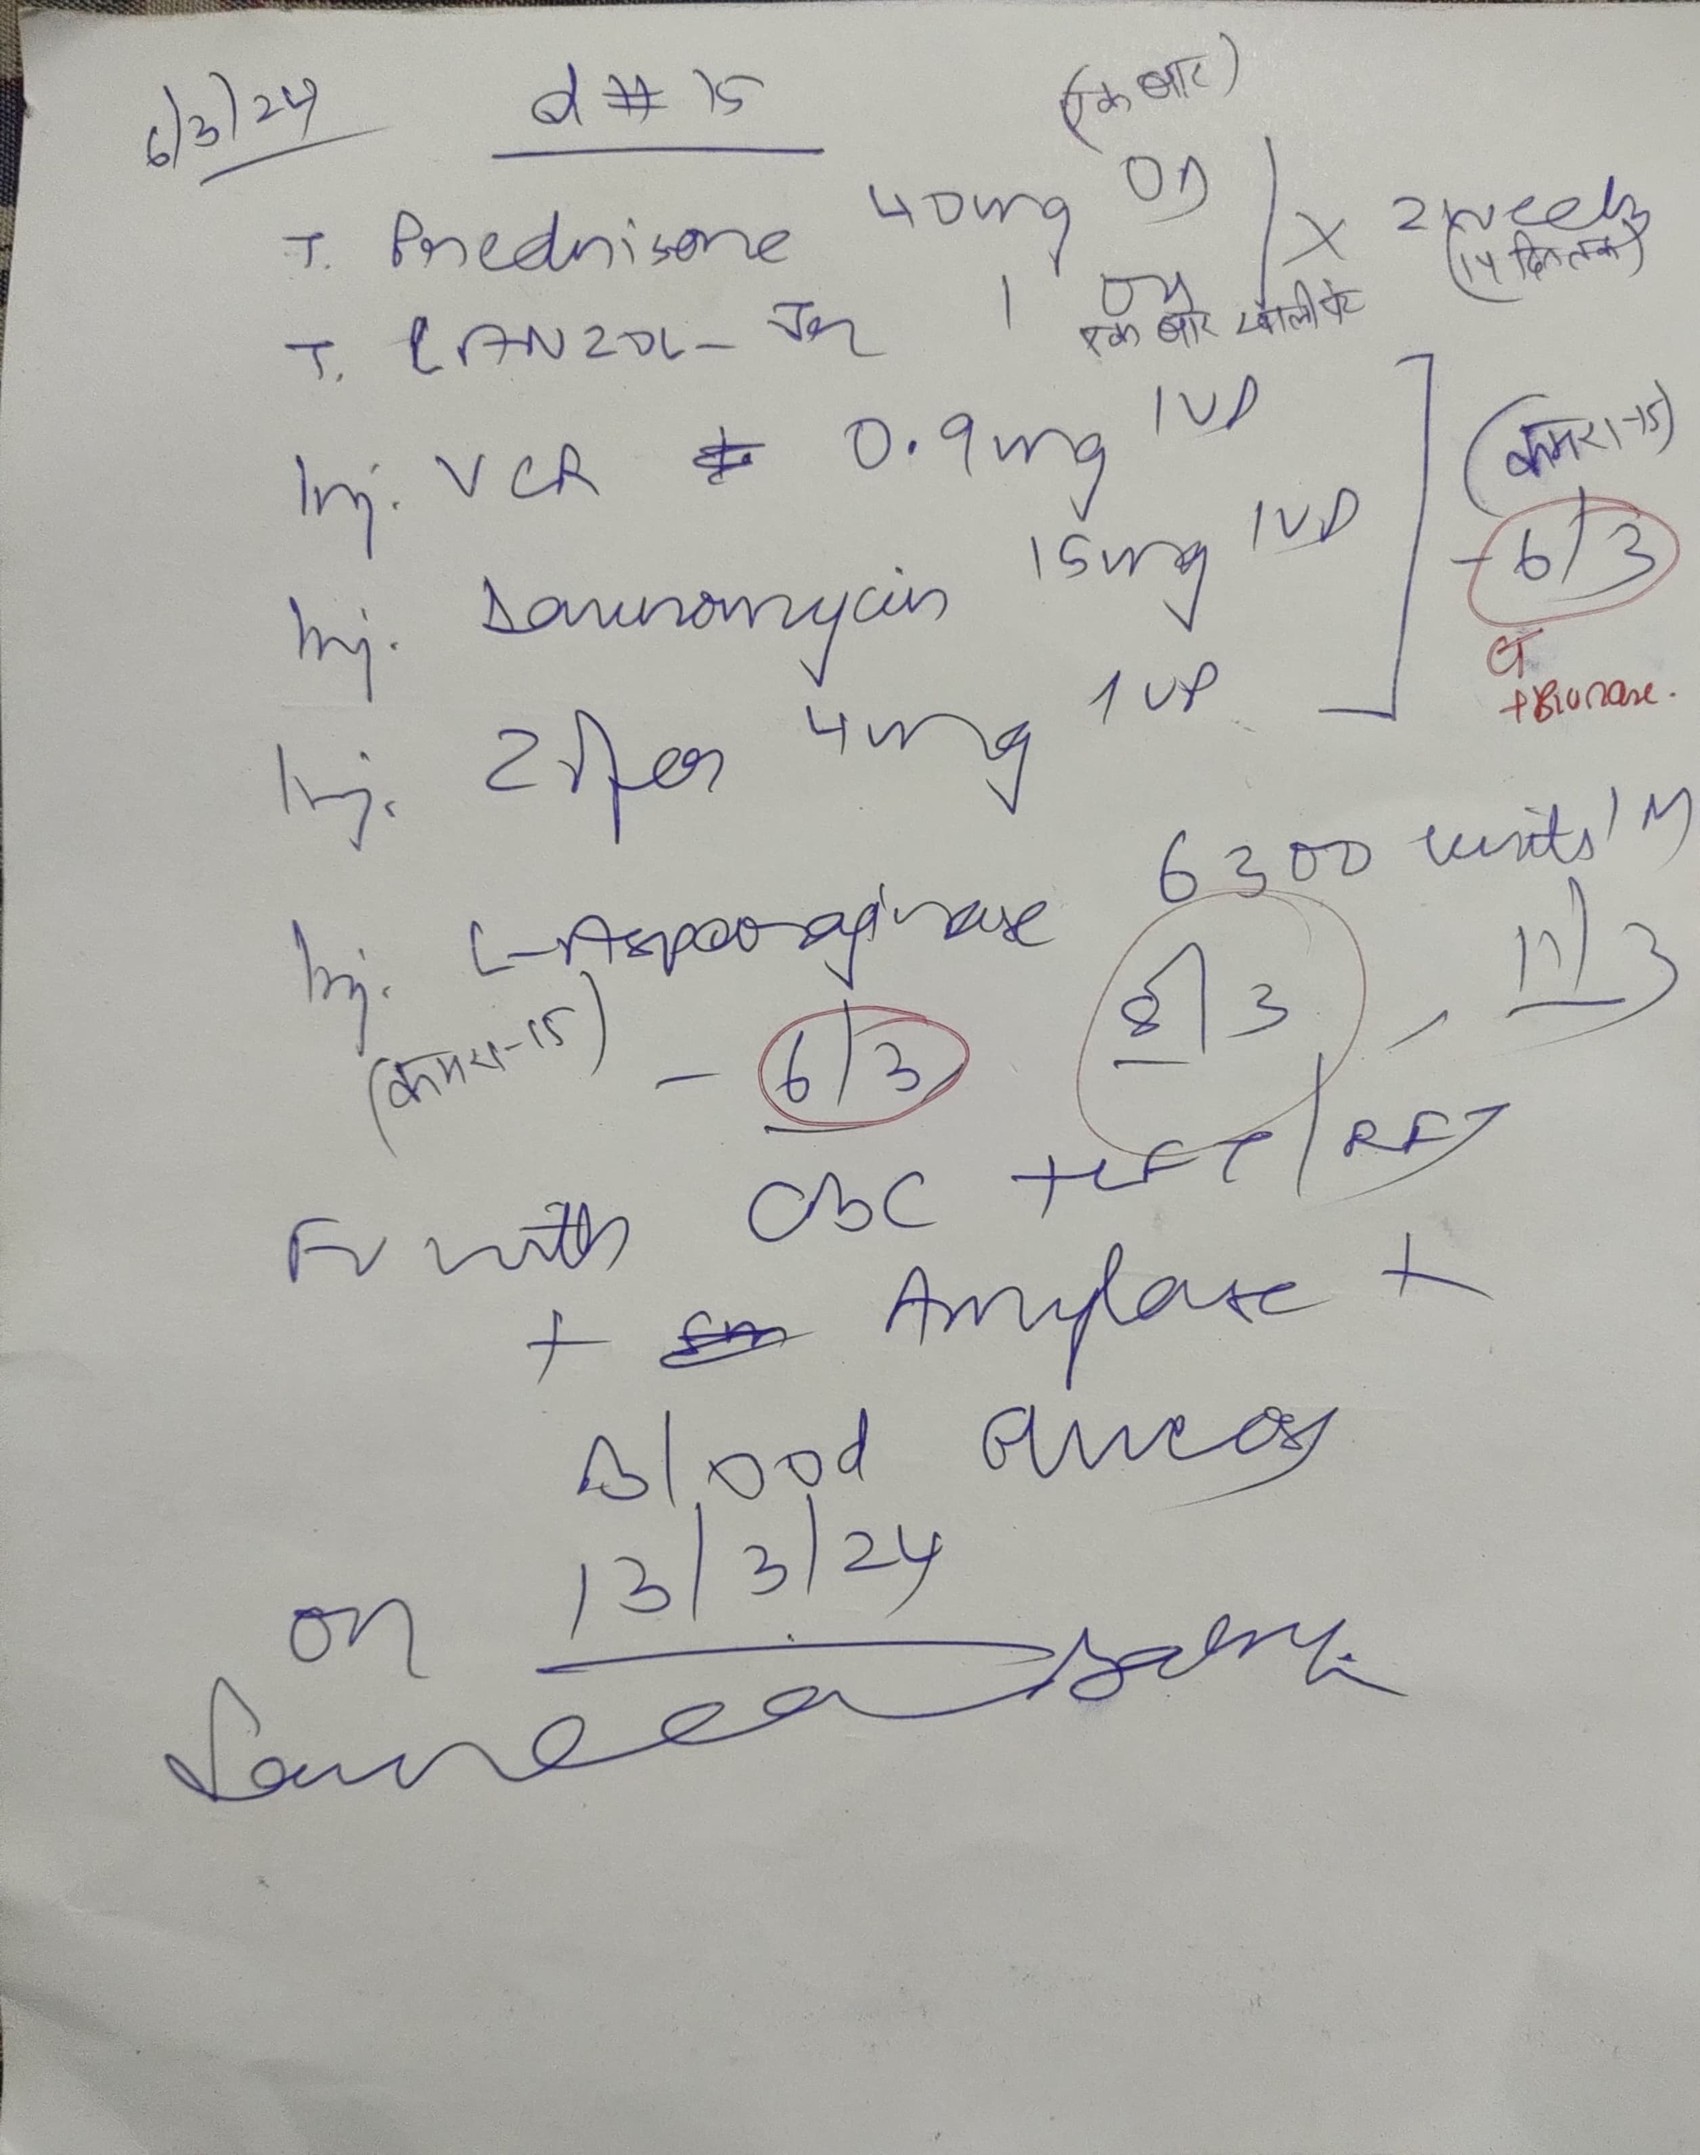 6/3/24 d # 15
(एक बार)
T. Prednisone 40mg OD x 2 weeks
(14 दिन तक)
T. LANZOL-Jr 1 OD
एक बार खाली पेट
Inj. VCR 0.9mg IVP
(कमरा-15)
Inj. Daunomycin 15mg IVP - 6/3
Inj. Zofer 4mg IVP
+ Bionase.
Inj. L-Asparaginase 6300 units IM
(कमरा-15) - 6/3 8/3, 11/3
FU with CBC + LFT/RFT
+ Amylase +
Blood Glucose
on 13/3/24